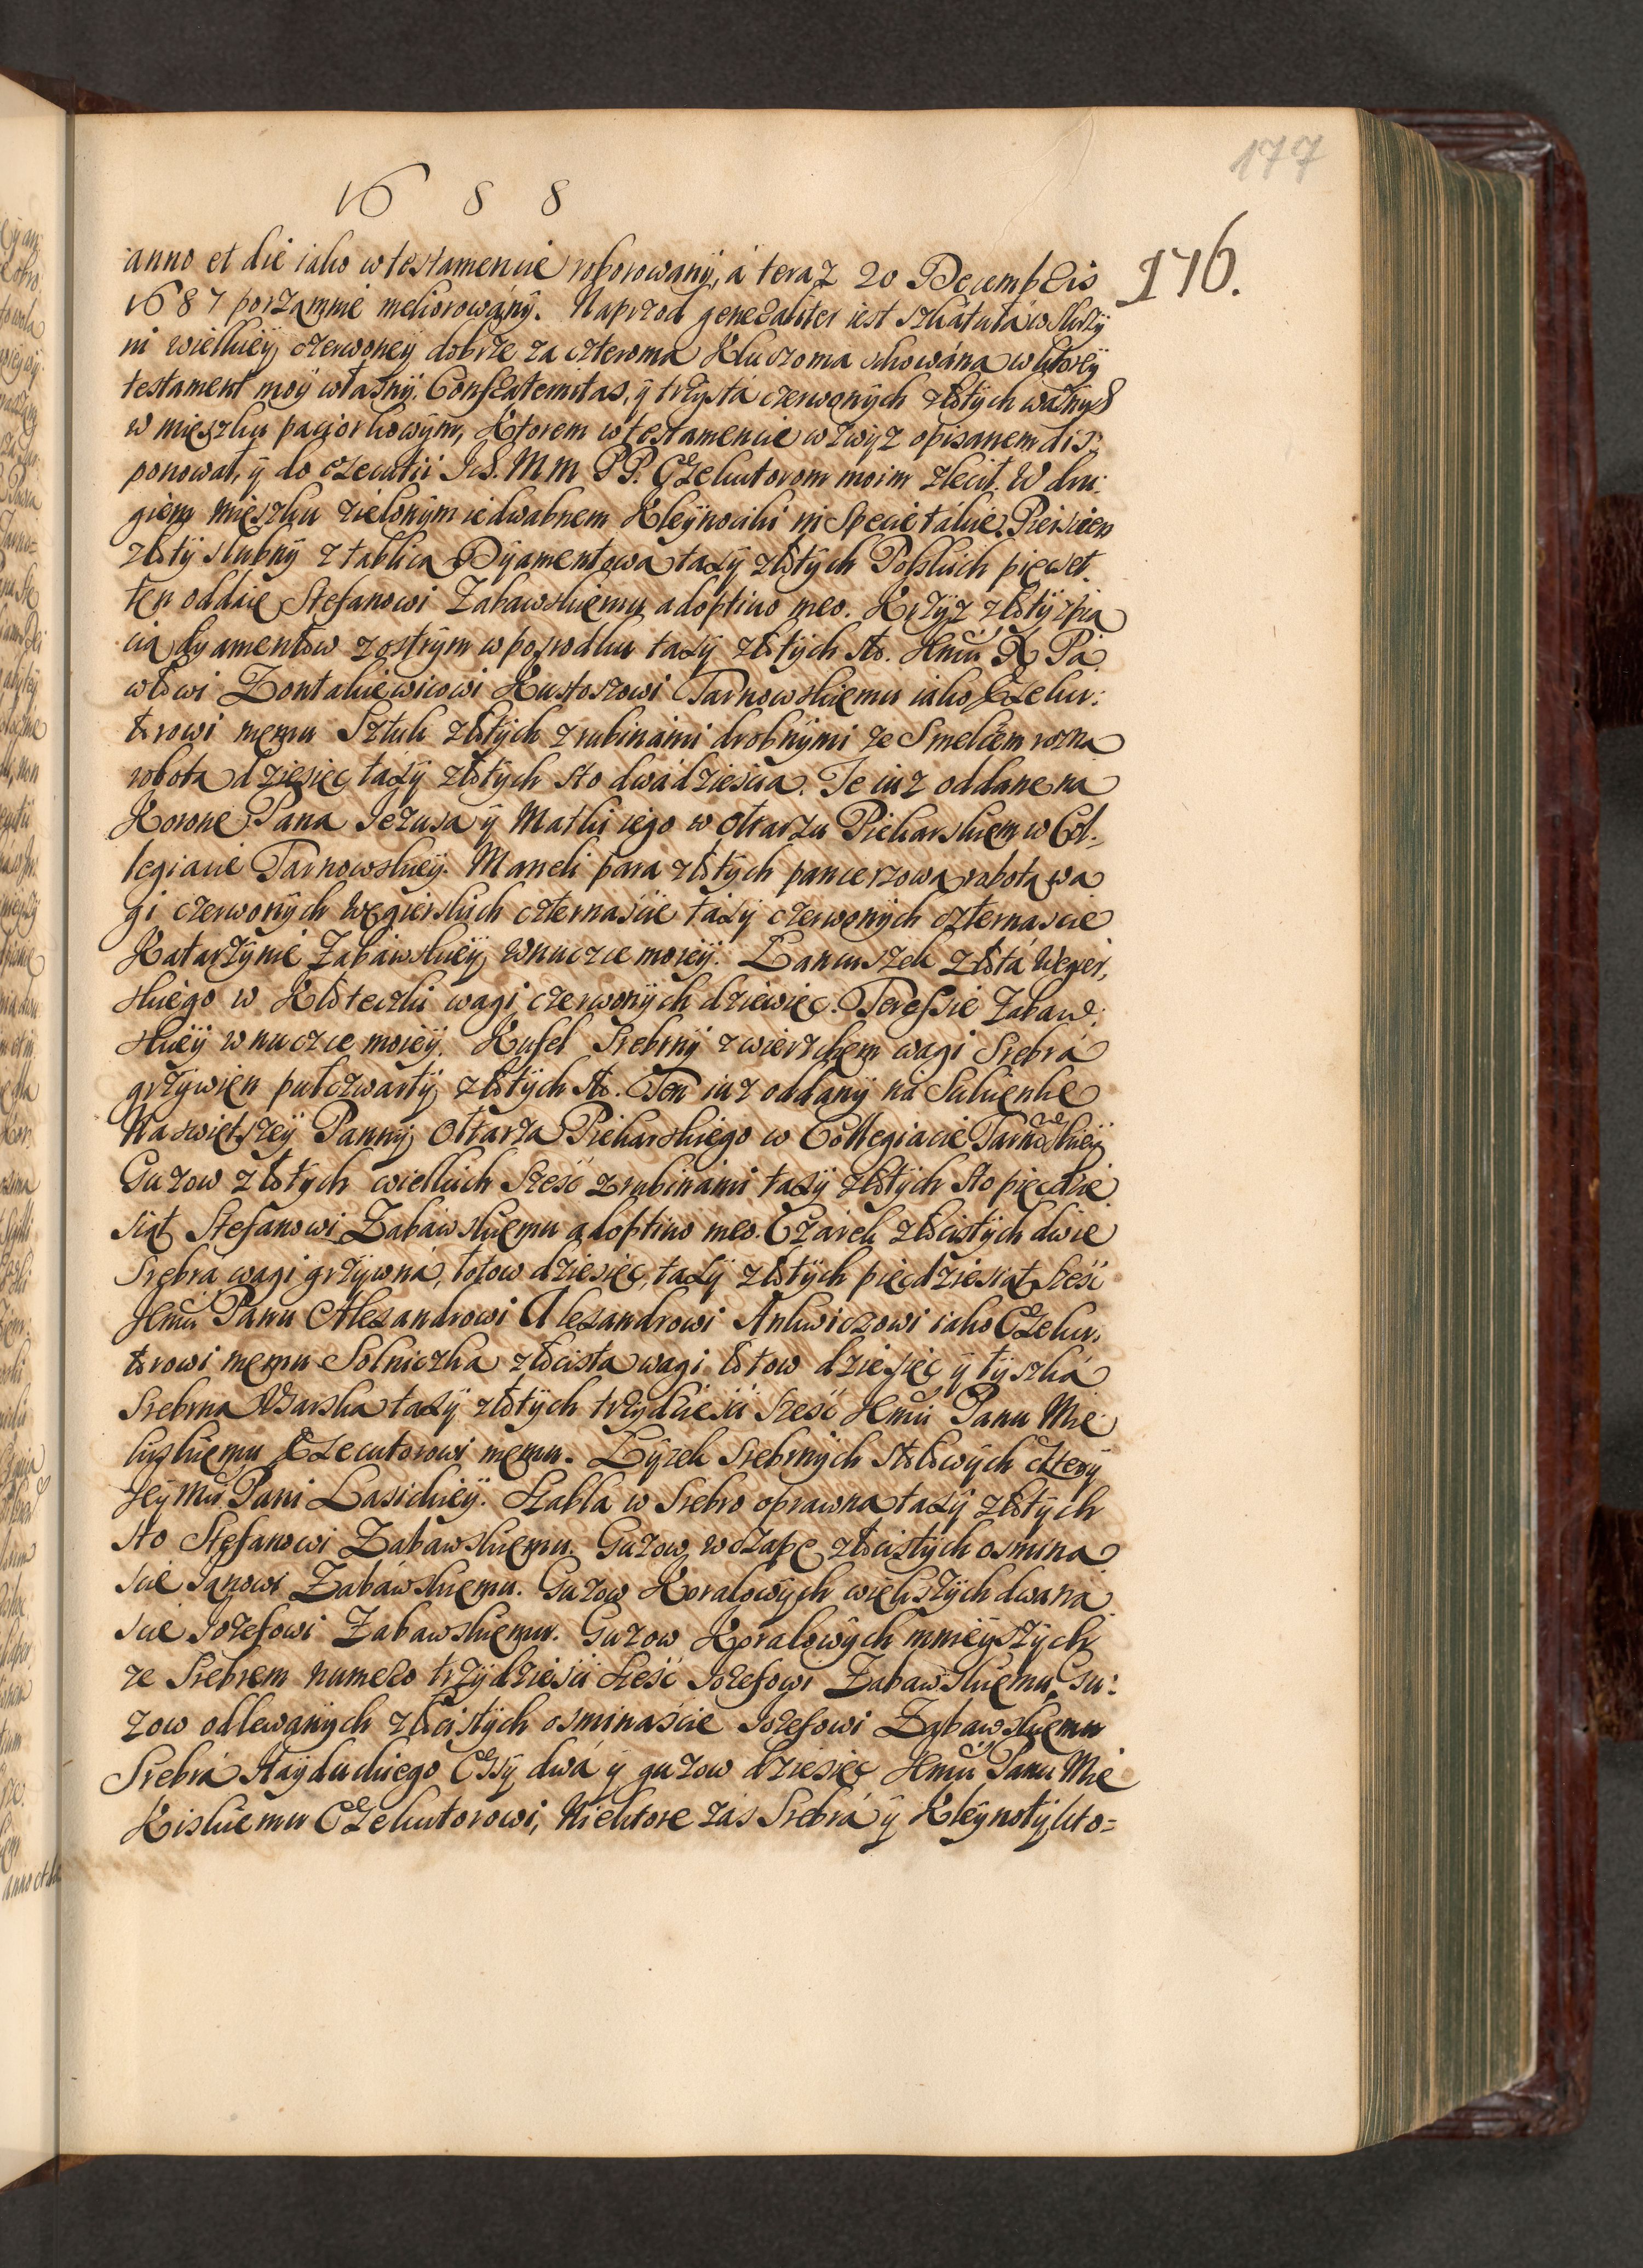 177
1688
176.
anno et die iako w testamencie roborowany, á teraz 20 Decembris
1687 porzamnie meliorowány. Naprzod generaliter iest szkátuła w skrzy
ni wielkiey czerwoney dobrze za czteroma Kluczoma schowána w ktorey
testament moy własny. Confraternitas, y trzysta czerwonych złotych ważnych
w mieszku paciorkowym, Ktorem w testamencie wzwyz opisanem dis:
ponował, y do exekutii Ich. Mm PP. Exekutorom moim zlecił. W dru:
giem mieszku zielonym iedwabnem Kleynociki in specie tákie. Pierscien
złoty slubny z tablicą Dyamentową taxy złotych Polskich pięcset.
ten oddáie Stefanowi Zabawskiemu adoptivo meo. Krzyz złoty z pią
cią dyamentow z ostrym w posrodku taxy złotych sto. Jmci X Pa
włowi Zontakiewicowi Kustoszowi Tarnowskiemu iako Exekur:
torowi memu Sztuk złotych z rubinámi drobnymi ze Smelcem rozną
robotą dziesięc taxy złotych sto dwádziescia. Te iuz oddane ná
Korone Pana Jezusa y Matki iego w ołtarzu Piekarskiem w Col:
legiacie Tarnowskiey. Maneli para złotych pancerzową robotą wa
gi czerwonych Węgierskich czternascie taxy czerwonych czternascie
Katarzynie Zabáwskiey Wnuczce moiey. Łancuszek złotá Węgier,
skiego w Kłoteczki wagi czerwonych dziewięc. Teressie Zabaw:
skiey wnuczce moiey. Kufel Srebrny z wierzchem wagi Srebrá
grzywien pułczwarty złotych sto. Ten iuz oddany ná Sukienke
Naswiętszey Panny Ołtarza Piekarskiego w Collegiacie Tarnowskiey
Guzow złotych wielkich szesc z rubinámi taxy złotych sto pięcdzie
siąt Stefanowi Zabáwskiemu adoptivo meo. Czarek złocistych dwie
Srebrá wagi grzywná, łotow dziesięc, taxy złotych pięcdziesiat szesc
Jmci Panu Alexandrowi Alexandrowi Ankwiczowi iako Exekur:
torowi memu Solniczka złocista wagi łotow dziesięc y łyszká
Srebrna Usarska taxy złotych trzydziesci szesc Jmci Panu Mie
kiskiemu Executorowi memu. Łyzek Srebrnych stołowych cztery
Jey Mci Pani Łasickiey. Szabla w Srebro oprawna taxy złotych
sto Stefanowi Zabawskiemu. Guzow w czape złocistych osmina
scie Janowi Zabáwskiemu. Guzow Koralowych większych dwana
scie Jozefowi Zabawskiemu. Guzow Koralowych mnieyszych
ze Srebrem numero trzydziesci szesc Jozefowi Zabawskiemu, Gu:
zow odlewanych złocistych osminascie Jozefowi Zabawskiemu
Srebrá Hayduckiego Czy dwá y guzow dziesięc Jmci Panu Mie
Kiskiemu Exekutorowi, Niektore zas Srebrá y Kleynoty, kto=